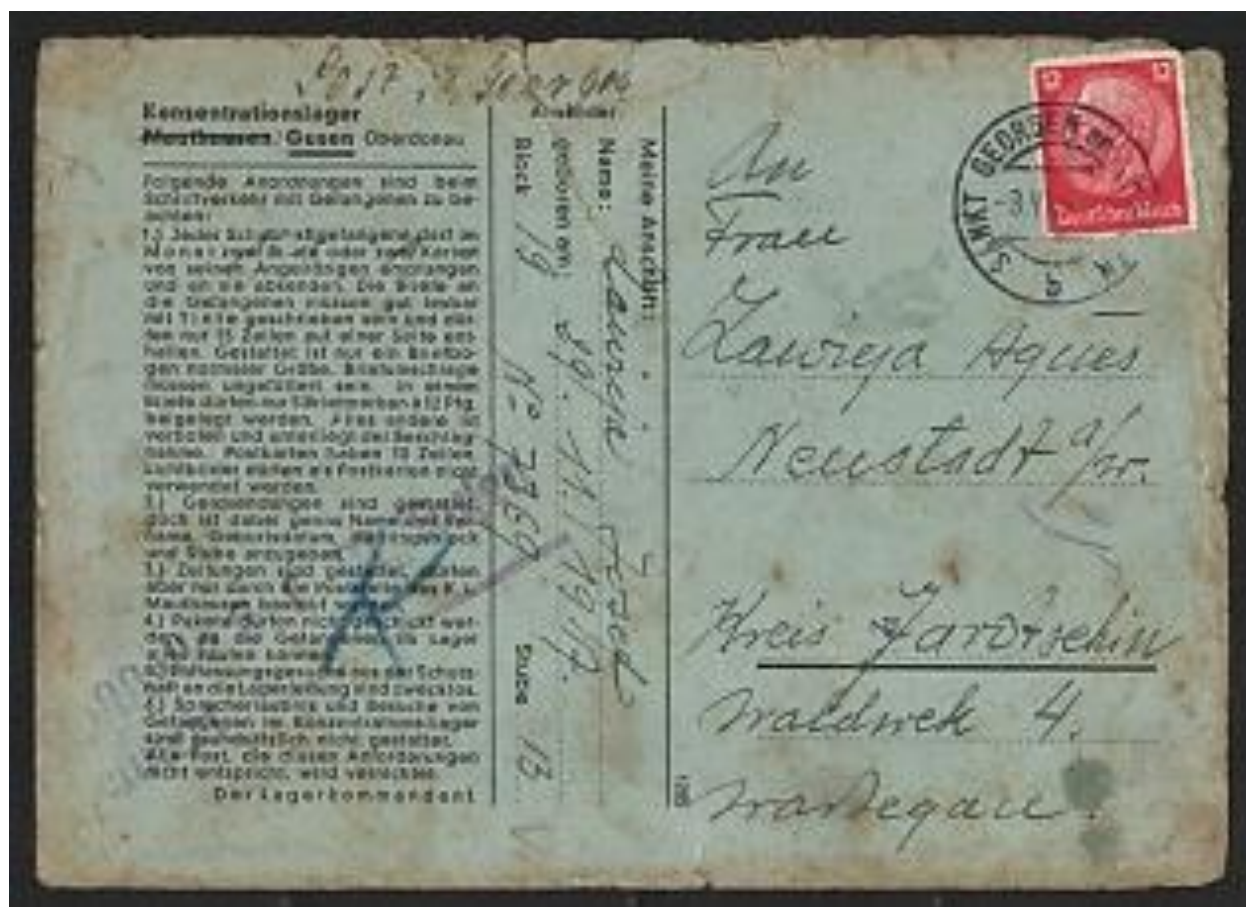 Post
Konzentrationslager
Mauthausen / Gusen Oberdonau
Folgende Anordnungen sind beim
Schriftverkehr mit Gefangenen zu be-
achten:
1.) Jeder Schutzhaftgefangene darf im
Monat zwei Briefe oder zwei Karten
von seinen Angehörigen empfangen
und an sie absenden. Die Briefe an
die Gefangenen müssen gut lesbar
mit Tinte geschrieben sein und dür-
fen nur 15 Zeilen auf einer Seite ent-
halten. Gestattet ist nur ein Briefbo-
gen normaler Größe. Briefumschläge
müssen ungefüttert sein. In einem
Briefe dürfen nur 5 Briefmarken à 12 Pfg.
beigelegt werden. Alles andere ist
verboten und unterliegt der Beschlag-
nahme. Postkarten haben 10 Zeilen.
Lichtbilder dürfen als Postkarten nicht
verwendet werden.
2.) Geldsendungen sind gestattet,
doch ist dabei genau Name und Vor-
name, Geburtsdatum, Häftlingsblock
und Stube anzugeben.
3.) Zeitungen sind gestattet, dürfen
aber nur durch die Poststelle des K. L.
Mauthausen bestellt werden.
4.) Pakete dürfen nicht geschickt wer-
den, da die Gefangenen im Lager
alles kaufen können.
5.) Entlassungsgesuche aus der Schutz-
haft an die Lagerleitung sind zwecklos.
6.) Sprecherlaubnis und Besuche von
Gefangenen im Konzentrationslager
sind grundsätzlich nicht gestattet.
Alle Post, die diesen Anforderungen
nicht entspricht, wird vernichtet.
Der Lagerkommandant
Absender
Meine Anschrift:
Name:
geboren am: 29. 11. 1917.
Block 19 Stube B.
No 7869
SANKT GEORGEN
b
12 12
Deutsches Reich
An
Frau
Zawieja Agnes
Neustadt a/w.
Kreis Jarotschin
Waldwek 4.
Wartegau.